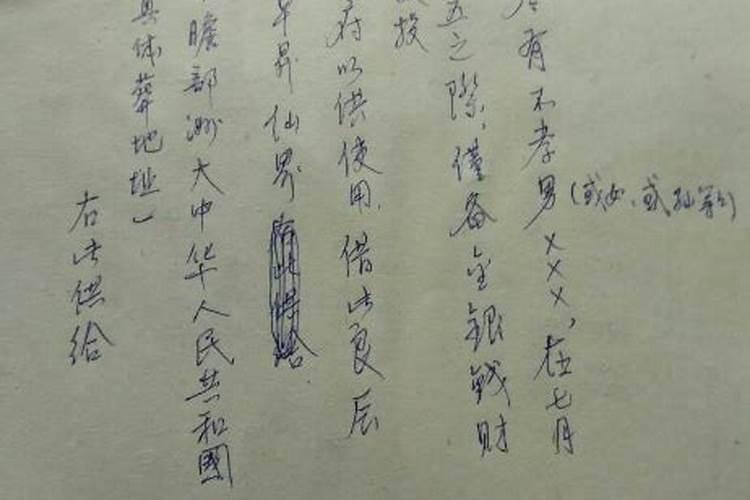 有不孝男×××，在七月
（或女、或孙等）
五之际，僅备金銀钱财
投
府以供使用，借此良辰
早昇仙界
瞻部洲大中华人民共和國
具体葬地址）
右此供给